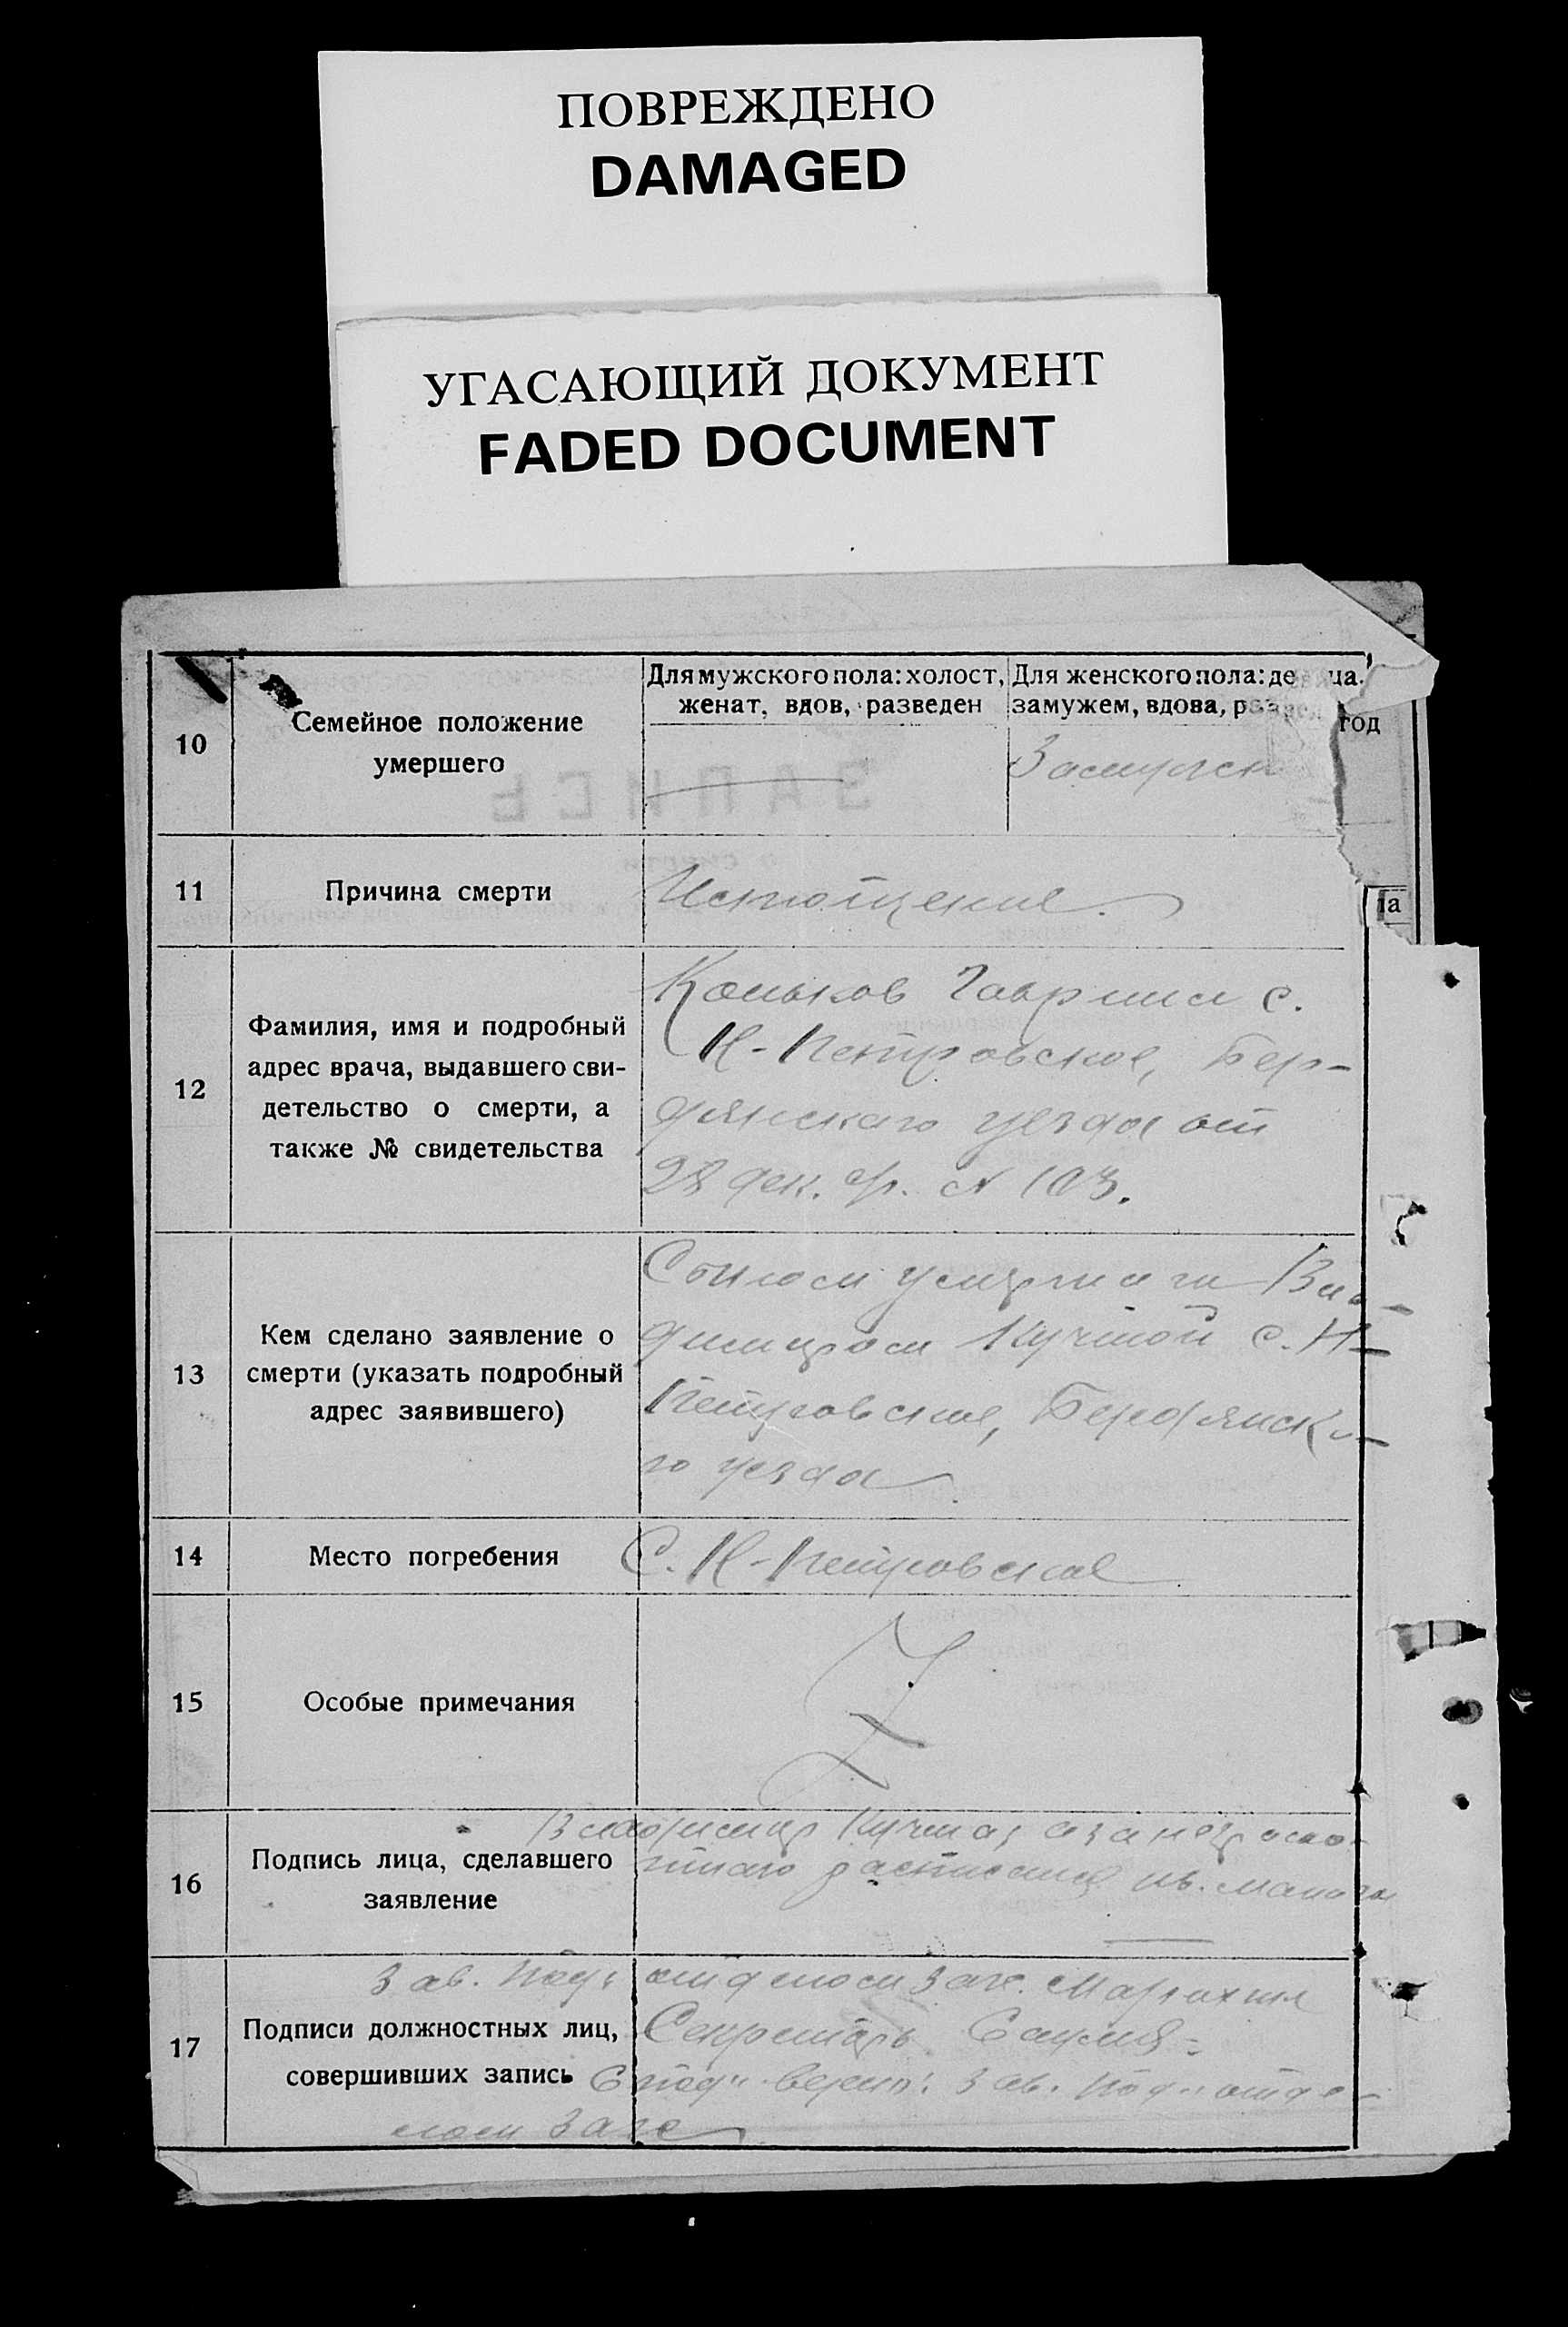 ПОВРЕЖДЕНО
DAMAGED
УГАСАЮЩИЙ ДОКУМЕНТ
FADED DOCUMENT
10
Семейное положение
умершего
Для мужского пола: холост,
женат, вдов, разведен
Для женского пола: де ца.
замужем, вдова, р
год
Замужем
11
Причина смерти
Истощение.
па
12
Фамилия, имя и подробный
адрес врача, выдавшего сви-
детельство о смерти, а
также № свидетельства
Коньков Гавриил с.
Н-Петровское, Бер-
дянскаго уезда от
28 дек. № 103.
13
Кем сделано заявление о
смерти (указать подробный
адрес заявившего)
Вла-
димиром Кучмой с. Н-
Петровское, Бердянска-
го уезда
14
Место погребения
С. Н-Петровское
15
Особые примечания
Z
16
Подпись лица, сделавшего
заявление
Владимир Кучма, а за неграмо-
тнаго
17
Подписи должностных лиц,
совершивших запись
Зав. Под отделом Загс.
Секретарь
верно: Зав. Под отде-
лом Загс